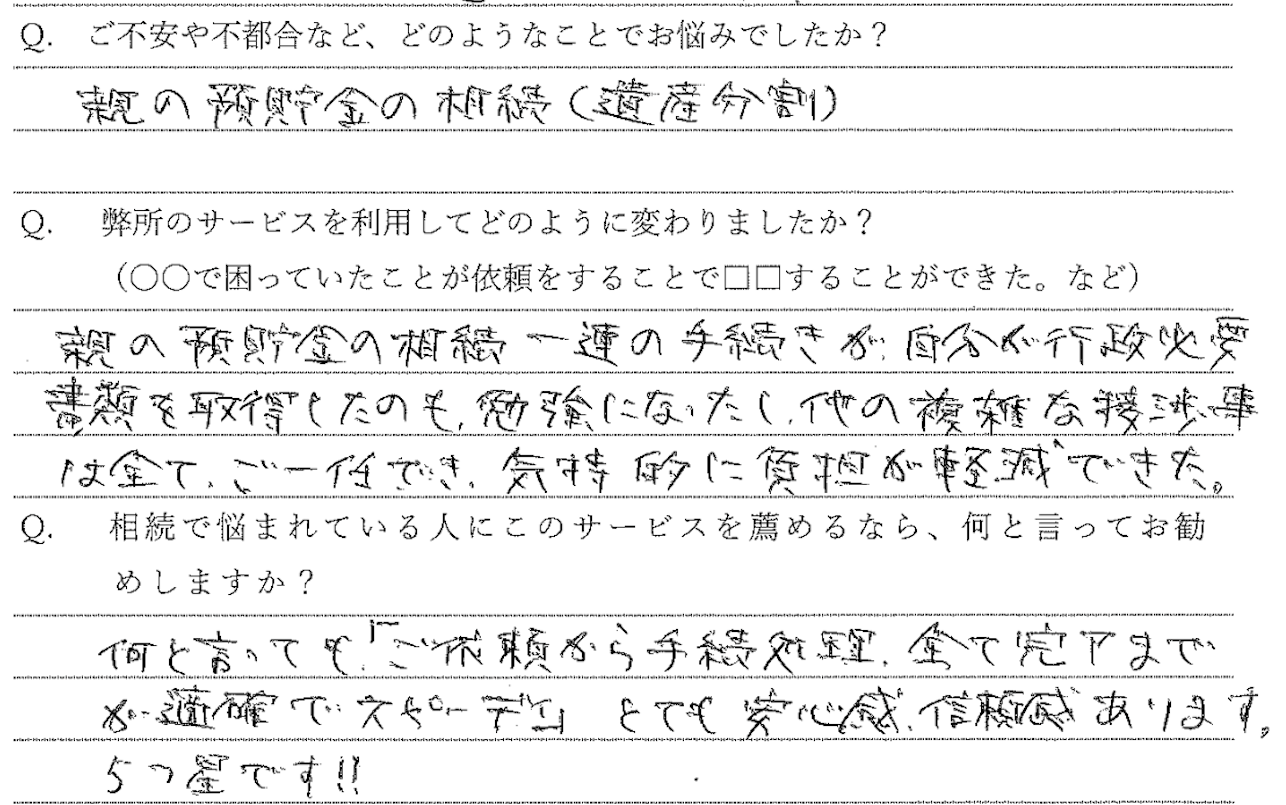 Q. ご不安や不都合など、どのようなことでお悩みでしたか？
親の預貯金の相続（遺産分割）
Q. 弊所のサービスを利用してどのように変わりましたか？
（〇〇で困っていたことが依頼をすることで□□することができた。など）
親の預貯金の相続一連の手続きが、自分が行政必要
書類を取得したのも、勉強になったし、他の複雑な接渉事
は全て、ご一任でき、気持的に負担が軽減できた。
Q. 相続で悩まれている人にこのサービスを薦めるなら、何と言ってお勧
めしますか？
何と言っても「ご依頼から手続処理、全て完了まで
が適確でスピーディ」とても安心感、信頼感あります。
5つ星です!!